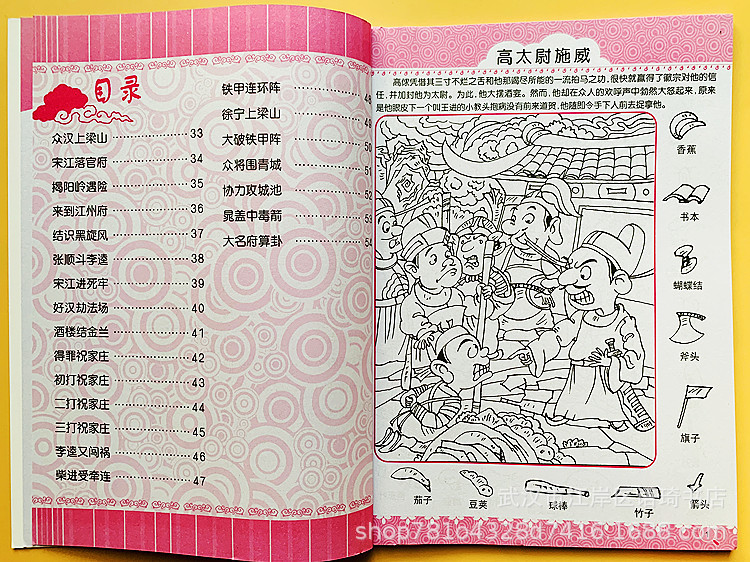 目录
众汉上梁山 33
宋江落官府 34
揭阳岭遇险 35
来到江州府 36
结识黑旋风 37
张顺斗李逵 38
宋江进死牢 39
好汉劫法场 40
酒楼结金兰 41
得罪祝家庄 42
初打祝家庄 43
二打祝家庄 44
三打祝家庄 45
李逵又闯祸 46
柴进受牵连 47
铁甲连环阵 48
徐宁上梁山 49
大破铁甲阵 50
众将围青城 51
协力攻城池 52
晁盖中毒箭 53
大名府算卦 54
高太尉施威
高俅凭借其三寸不烂之舌和他那竭尽所能的一流拍马之功，很快就赢得了徽宗对他的信
任，并加封他为太尉。为此，他大摆酒宴。然而，他却在众人的欢呼声中勃然大怒起来，原来
是他眼皮下一个叫王进的小教头抱病没有前来道贺，他随即令手下人前去捉拿他。
香蕉
书本
蝴蝶结
斧头
旗子
茄子
豆荚
球棒
竹子
箭头